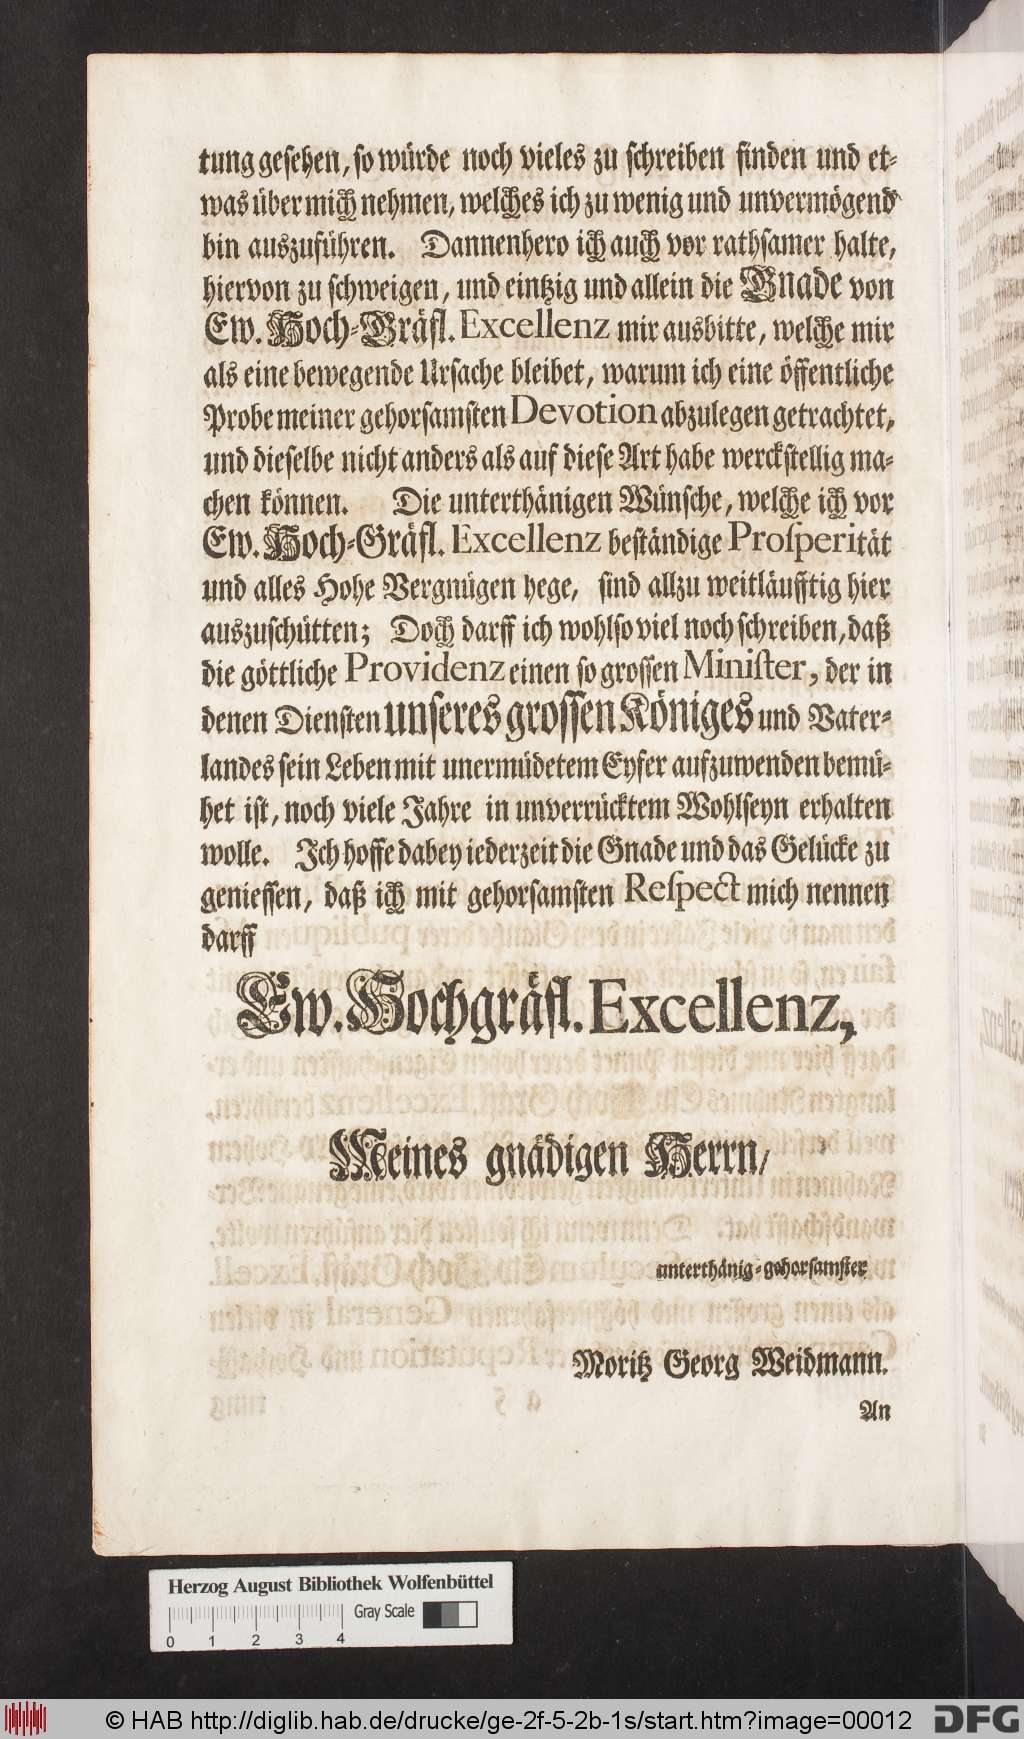 tung gesehen, so würde noch vieles zu schreiben finden und et-
was über mich nehmen, welches ich zu wenig und unvermögend
bin auszuführen. Dannenhero ich auch vor rathsamer halte,
hiervon zu schweigen, und eintzig und allein die Gnade von
Ew. Hoch-Gräfl. Excellenz mir ausbitte, welche mir
als eine bewegende Ursache bleibet, warum ich eine öffentliche
Probe meiner gehorsamsten Devotion abzulegen getrachtet,
und dieselbe nicht anders als auf diese Art habe werckstellig ma-
chen können. Die unterthänigen Wünsche, welche ich vor
Ew. Hoch-Gräfl. Excellenz beständige Prosperität
und alles Hohe Vergnügen hege, sind allzu weitläufftig hier
auszuschütten; Doch darff ich wohl so viel noch schreiben, daß
die göttliche Providenz einen so grossen Minister, der in
denen Diensten unseres grossen Königes und Vater-
landes sein Leben mit unermüdetem Eyfer aufzuwenden bemü-
het ist, noch viele Jahre in unverrücktem Wohlseyn erhalten
wolle. Ich hoffe dabey iederzeit die Gnade und das Gelücke zu
geniessen, daß ich mit gehorsamsten Respect mich nennen
darff
Ew. Hochgräfl. Excellenz,
Meines gnädigen Herrn/
unterthänig-gehorsamster
Moritz Georg Weidmann.
An
Herzog August Bibliothek Wolfenbüttel
Gray Scale
0 1 2 3 4
© HAB http://diglib.hab.de/drucke/ge-2f-5-2b-1s/start.htm?image=00012
DFG